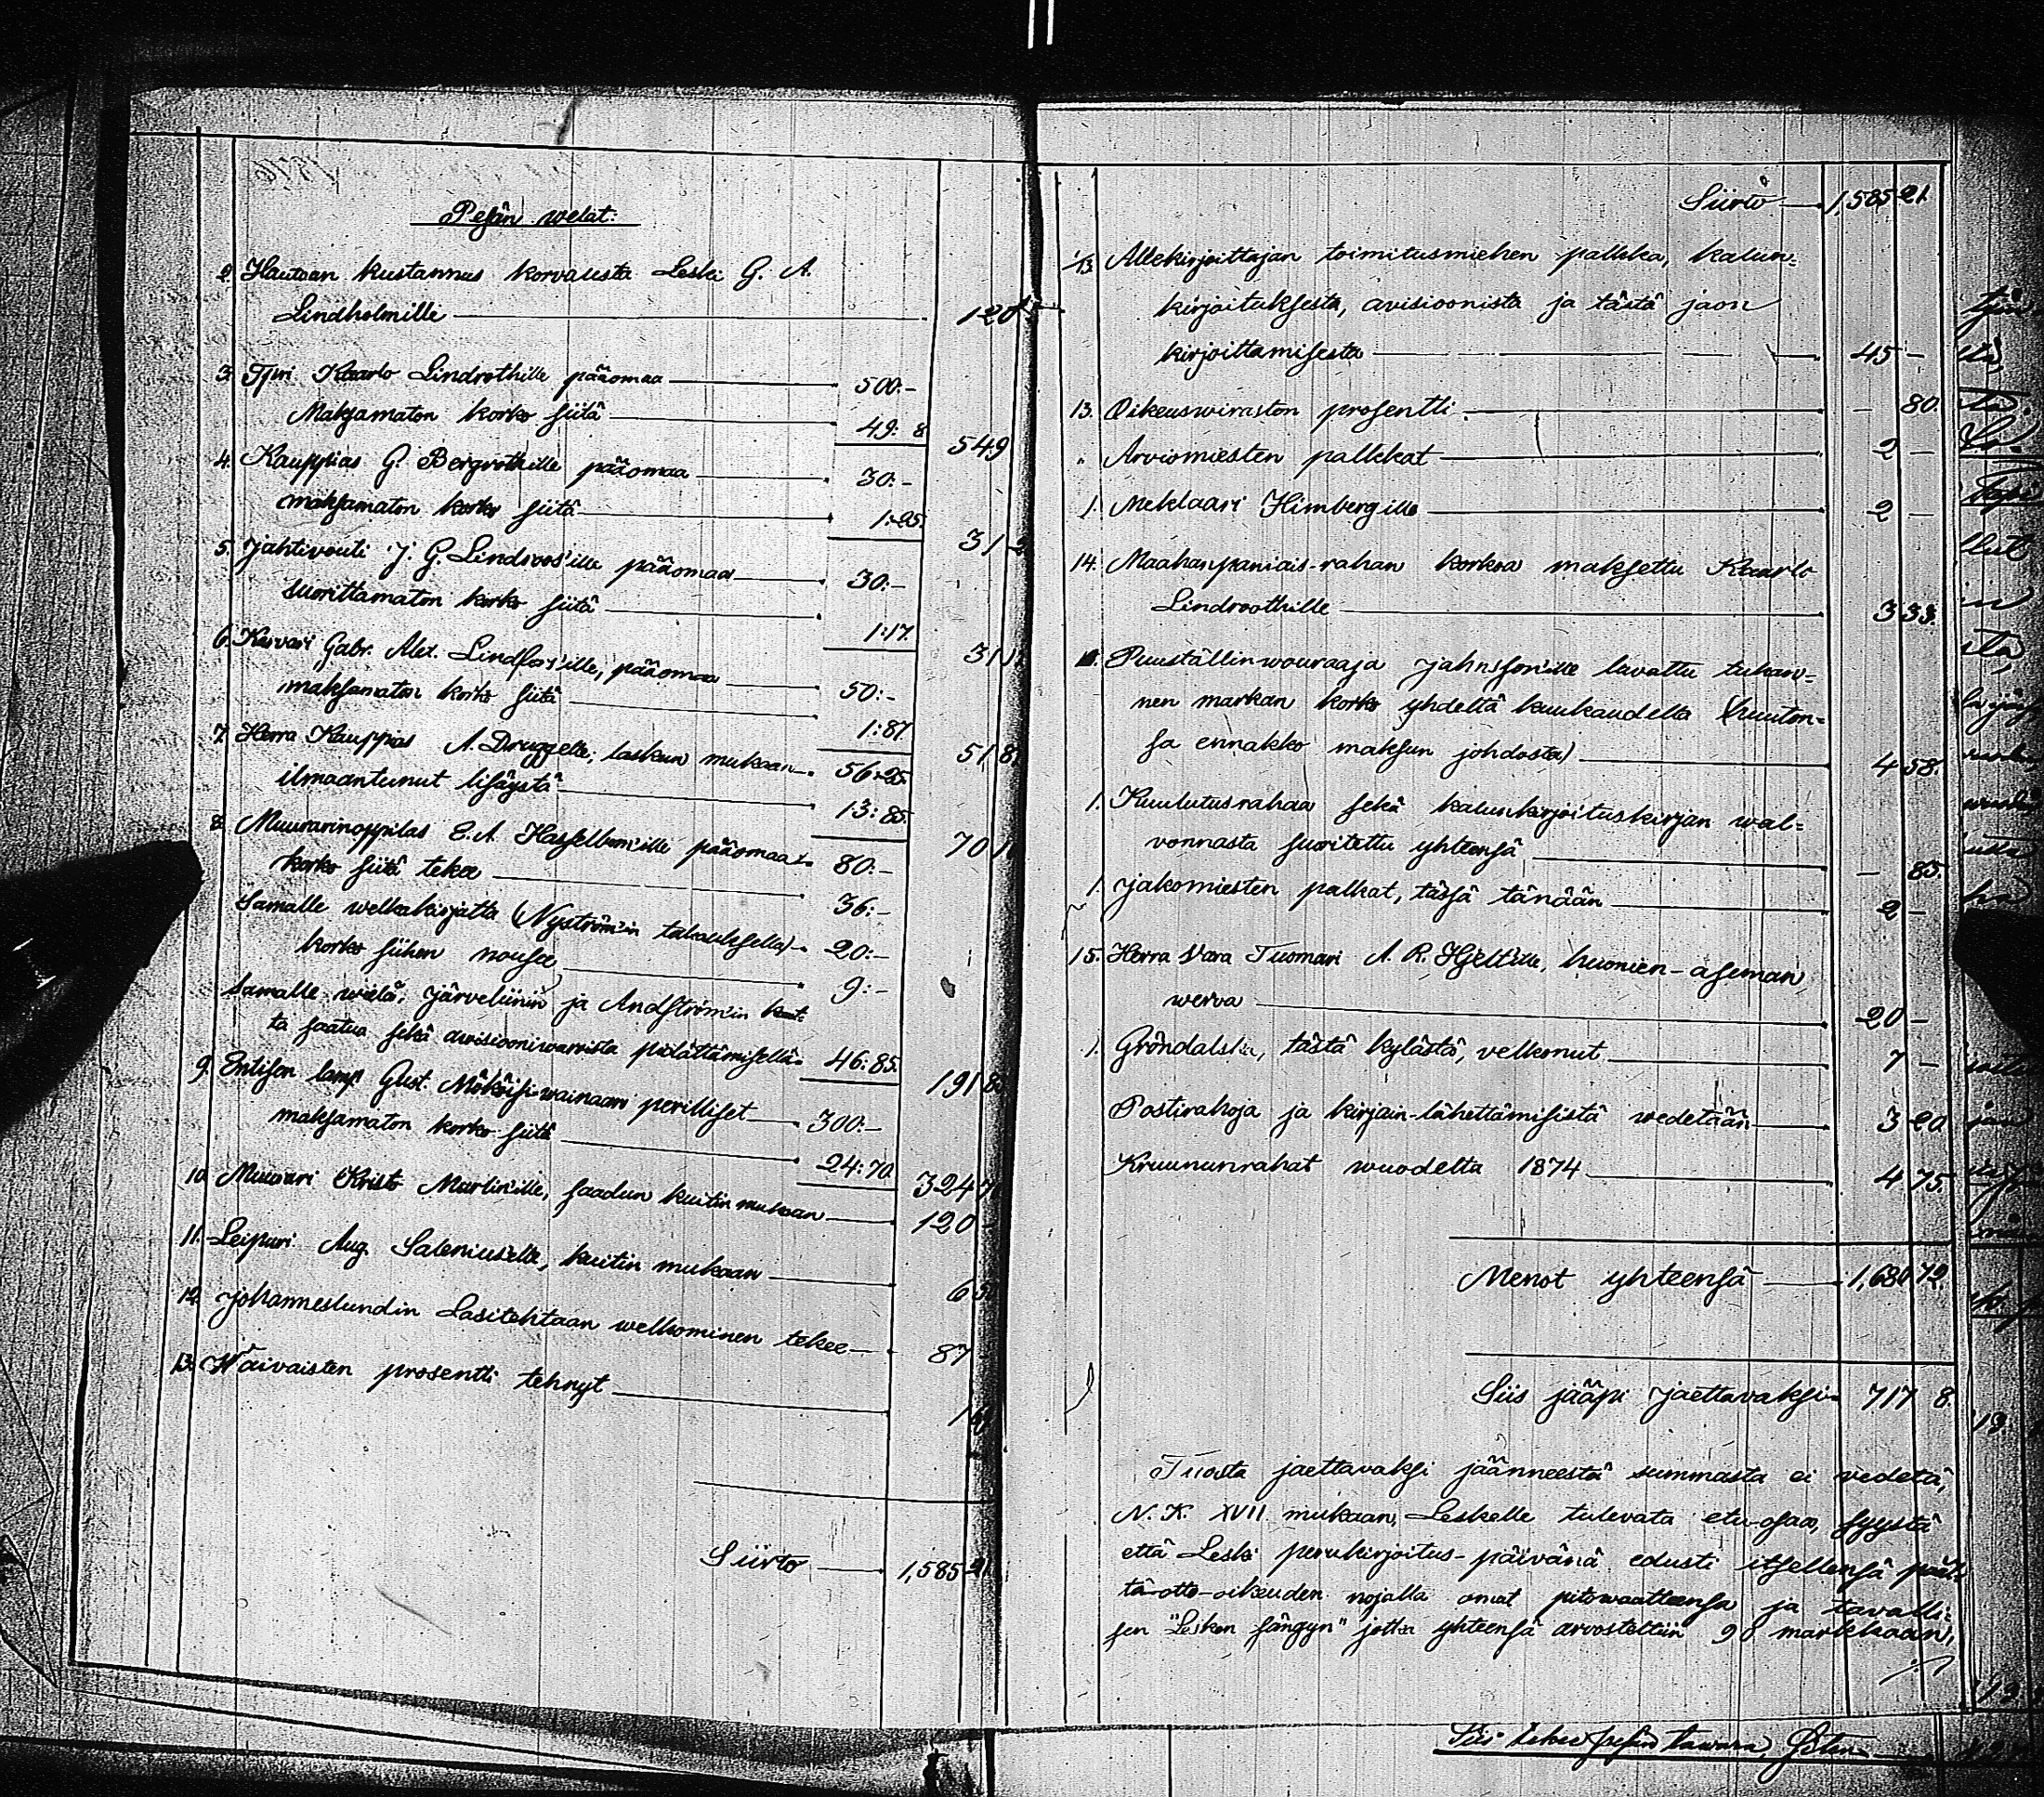 Pesän welat.
2. Hautaan kustannus korvausta Leski G. A.
Lindholmille 120
3. Kaarlo Lindrothille pääomaa 500:-
Maksamaton korko siitä 49: 8
549
4. Kauppias G. Bergrothille pääomaa 30:-
maksamaton korko siitä 1:25
31 2
5. Jahtivouti J. G. Lindroos'ille pääomaa 30:-
suorittamaton korko siitä 1:17.
31 1
6. Karvari Gabr. Alex. Lindfors'ille, pääomaa 50:-
maksamaton korko siitä 1:87
51 8
7. Herra Kauppias A. Druggelle, laskun mukaan 56:25
ilmaantunut lisäystä 13:85
70 1
8. Muurarinoppilas E. A. Hasselbom'ille pääomaa 80:-
korko siitä tekee 36:-
Samalle welkakirjatta (Nyström'in takauksella) 20:-
korko siihen nousee 9:-
Samalle wielä, Järveliinin ja Andström'in kaut-
ta saatua sekä avisiooniwarvista pidättämisellä 46:85.
191 8
9. Entisen lamp. Gust. wainaan perilliset 300:-
maksamaton korko siitä 24:70.
324 7
10. Muurari Krist. Martin'ille, saadun kuitin mukaan 120 -
11. Leipuri Aug. Salenius'elle, kuitin mukaan 6
12. Johanneslundin Lasitehtaan welkominen tekee 87
13. Waivaisten prosentti tehnyt 1
Siirto 1,585 21
Siirto 1,585 21.
13. Allekirjoittajan toimitusmiehen palkka, kalun-
kirjoituksesta, avisioonista ja tästä jaon
kirjoittamisesta 45 -
13. Oikeuswiraston prosentti - 80.
" Arviomiesten palkkat 2 -
1. Meklaari Himbergille 2 -
14. Maahanpaniais-rahan korkoa maksettu Kaarlo
Lindroothille 3 33.
Puuställinwouraaja Jahnsson'ille luvattu tuhan-
nen markan korko yhdeltä kuukaudelta (huuton-
sa ennakko maksun johdosta) 4 58.
1. Kuulutusrahaa sekä kalunkirjoituskirjan wal-
vonnasta suoritettu yhteensä - 85.
1. Jakomiesten palkat, tässä tänään 2 -
15. Herra Vara Tuomari A. R. Hjelt'ille, huonien-aseman
werva 20 -
1. Gröndalska, tästä kylästä, velkonut 7 -
Postirahoja ja kirjain-lähettämisistä wedetään 3 20
Kruununrahat wuodelta 1874 4 75.
Menot yhteensä 1,680 72.
Siis jääpi jaettavaksi 717 8.
Tuosta jaettavaksi jäänneestä summasta ei vedetä,
N. K. XVII mukaan, Leskelle tulevata etu-osaa, syystä
että Leski perukirjoitus-päivänä edusti itsellensä pääl-
tä-otto-oikeuden nojalla omat pitowaatteensa ja tavalli-
sen "Lesken sängyn" jotka yhteensä arvosteltiin 98 markkaan,
Siis tekee pesän tawara,